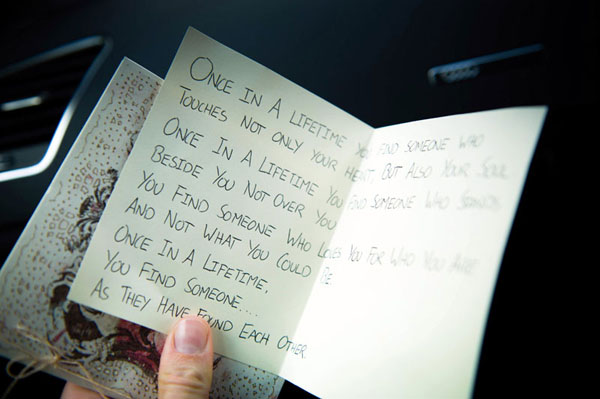 Once In A Lifetime You Find Someone Who
Touches Not Only Your Heart But Also Your Soul
Once In A Lifetime You Find Someone Who Stands
Beside You Not Over You
You Find Someone Who Loves You For Who You Are
And Not What You Could Be
Once In A Lifetime,
You Find Someone....
As They Have Found Each Other.